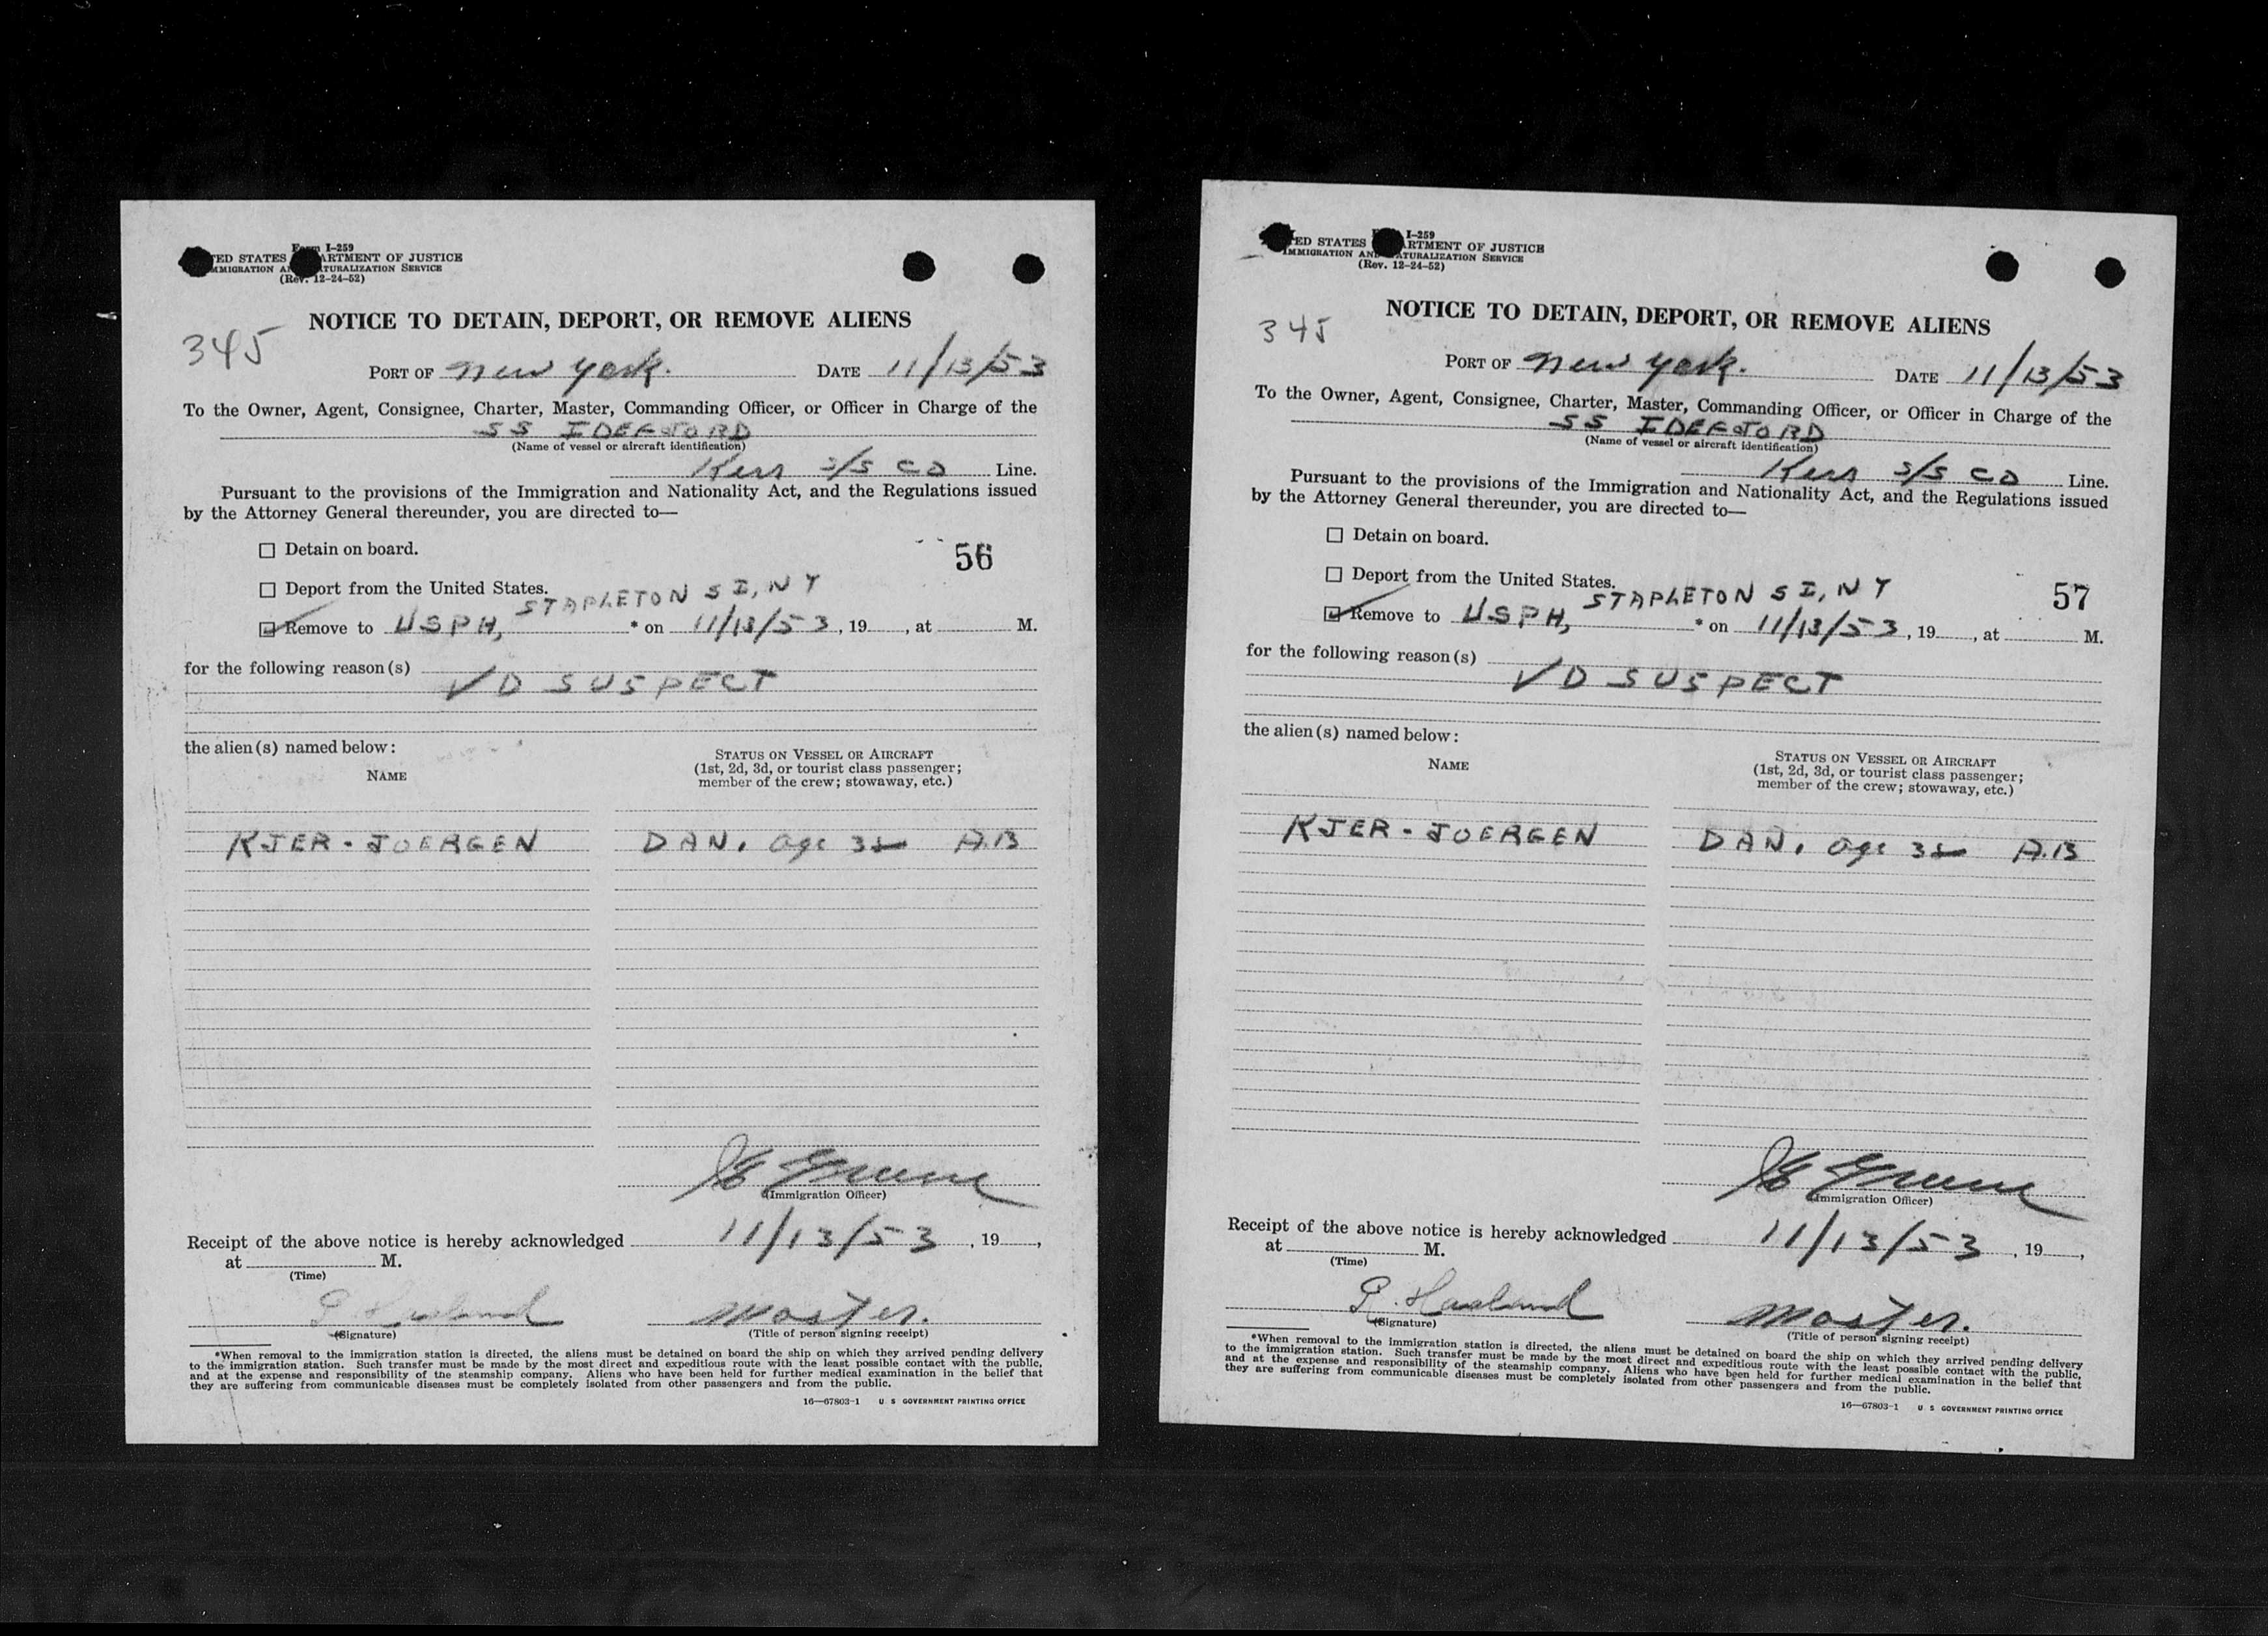 Form I-259
TED STATES ARTMENT OF JUSTICE
MMIGRATION AN TURALIZATION SERVICE
(Rev. 12-24-52)
NOTICE TO DETAIN, DEPORT, OR REMOVE ALIENS
345
PORT OF New York. DATE 11/13/53
To the Owner, Agent, Consignee, Charter, Master, Commanding Officer, or Officer in Charge of the
SS IDEFJORD
(Name of vessel or aircraft identification)
Kerr S/S CO Line.
Pursuant to the provisions of the Immigration and Nationality Act, and the Regulations issued
by the Attorney General thereunder, you are directed to—
☐ Detain on board.
56
☐ Deport from the United States.
STAPLETON S I, N Y
Remove to USPH, * on 11/13/53, 19 , at M.
for the following reason(s)
VD SUSPECT
the alien(s) named below:
NAME
STATUS ON VESSEL OR AIRCRAFT
(1st, 2d, 3d, or tourist class passenger;
member of the crew; stowaway, etc.)
KJER - JOERGEN DAN. age A.B
(Immigration Officer)
Receipt of the above notice is hereby acknowledged 11/13/53, 19 ,
at M.
(Time)
Master.
(Signature) (Title of person signing receipt)
*When removal to the immigration station is directed, the aliens must be detained on board the ship on which they arrived pending delivery
to the immigration station. Such transfer must be made by the most direct and expeditious route with the least possible contact with the public,
and at the expense and responsibility of the steamship company. Aliens who have been held for further medical examination in the belief that
they are suffering from communicable diseases must be completely isolated from other passengers and from the public.
16—67803-1 U S GOVERNMENT PRINTING OFFICE
I-259
TED STATES ARTMENT OF JUSTICE
IMMIGRATION AND ATURALIZATION SERVICE
(Rev. 12-24-52)
NOTICE TO DETAIN, DEPORT, OR REMOVE ALIENS
345
PORT OF New York. DATE 11/13/53
To the Owner, Agent, Consignee, Charter, Master, Commanding Officer, or Officer in Charge of the
SS IDEFJORD
(Name of vessel or aircraft identification)
Kerr S/S CO Line.
Pursuant to the provisions of the Immigration and Nationality Act, and the Regulations issued
by the Attorney General thereunder, you are directed to—
☐ Detain on board.
☐ Deport from the United States.
57
STAPLETON S I, N Y
Remove to USPH, * on 11/13/53, 19 , at M.
for the following reason(s)
VD SUSPECT
the alien(s) named below:
NAME
STATUS ON VESSEL OR AIRCRAFT
(1st, 2d, 3d, or tourist class passenger;
member of the crew; stowaway, etc.)
KJER - JOERGEN DAN. age A.B
(Immigration Officer)
Receipt of the above notice is hereby acknowledged 11/13/53, 19 ,
at M.
(Time)
Master.
(Signature) (Title of person signing receipt)
*When removal to the immigration station is directed, the aliens must be detained on board the ship on which they arrived pending delivery
to the immigration station. Such transfer must be made by the most direct and expeditious route with the least possible contact with the public,
and at the expense and responsibility of the steamship company. Aliens who have been held for further medical examination in the belief that
they are suffering from communicable diseases must be completely isolated from other passengers and from the public.
16—67803-1 U S GOVERNMENT PRINTING OFFICE